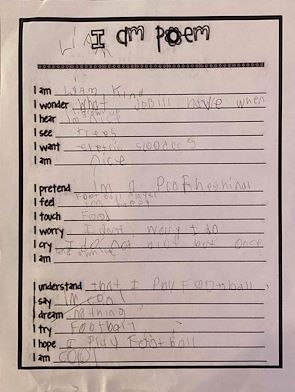 LIAM
I am poem
I am Liam, Kind
I wonder What Job ill have when
I hear im grown up
I see trees
I want eletric scooders
I am nice
I pretend im a Profheshinal
Football player
I feel im
I touch Food
I worry I dont worry I do
I cry I do not cry but once
I am
I understand that I Play Football
I say im cool
I dream nothing
I try Football
I hope I Play Football
I am COOl